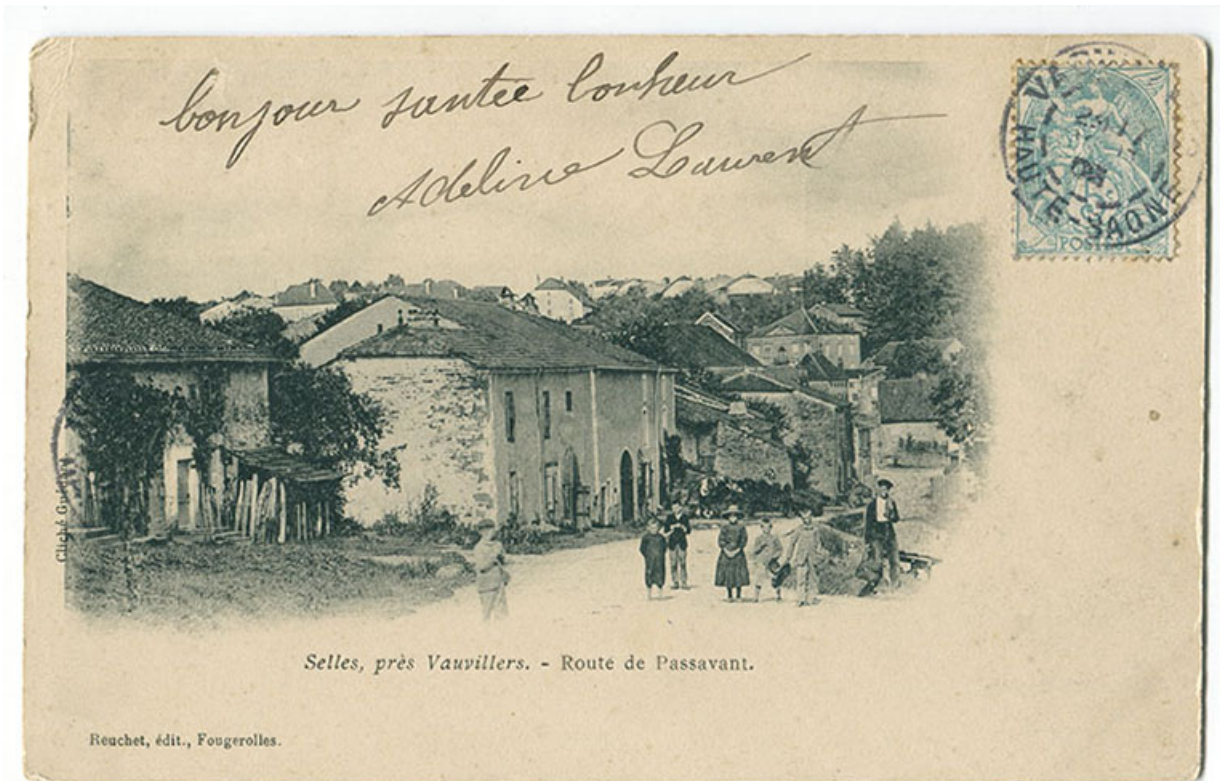 bonjour santee bonheur
Adeline Laurent
HAUTE-SAONE
POSTES
Cliché
Selles, près Vauvillers. - Route de Passavant.
Reuchet, édit., Fougerolles.